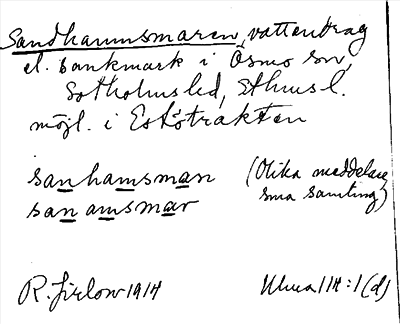 Sandhamnsmaren, vattendrag
el. sankmark i Ösmo sn,
Sotholms hd, Sthms l.
möjl. i Estötrakten
sanhamsman (Olika meddelare
sanamsmar sma samting)
R. Jirlow 1914 Ulma 114:1(d)